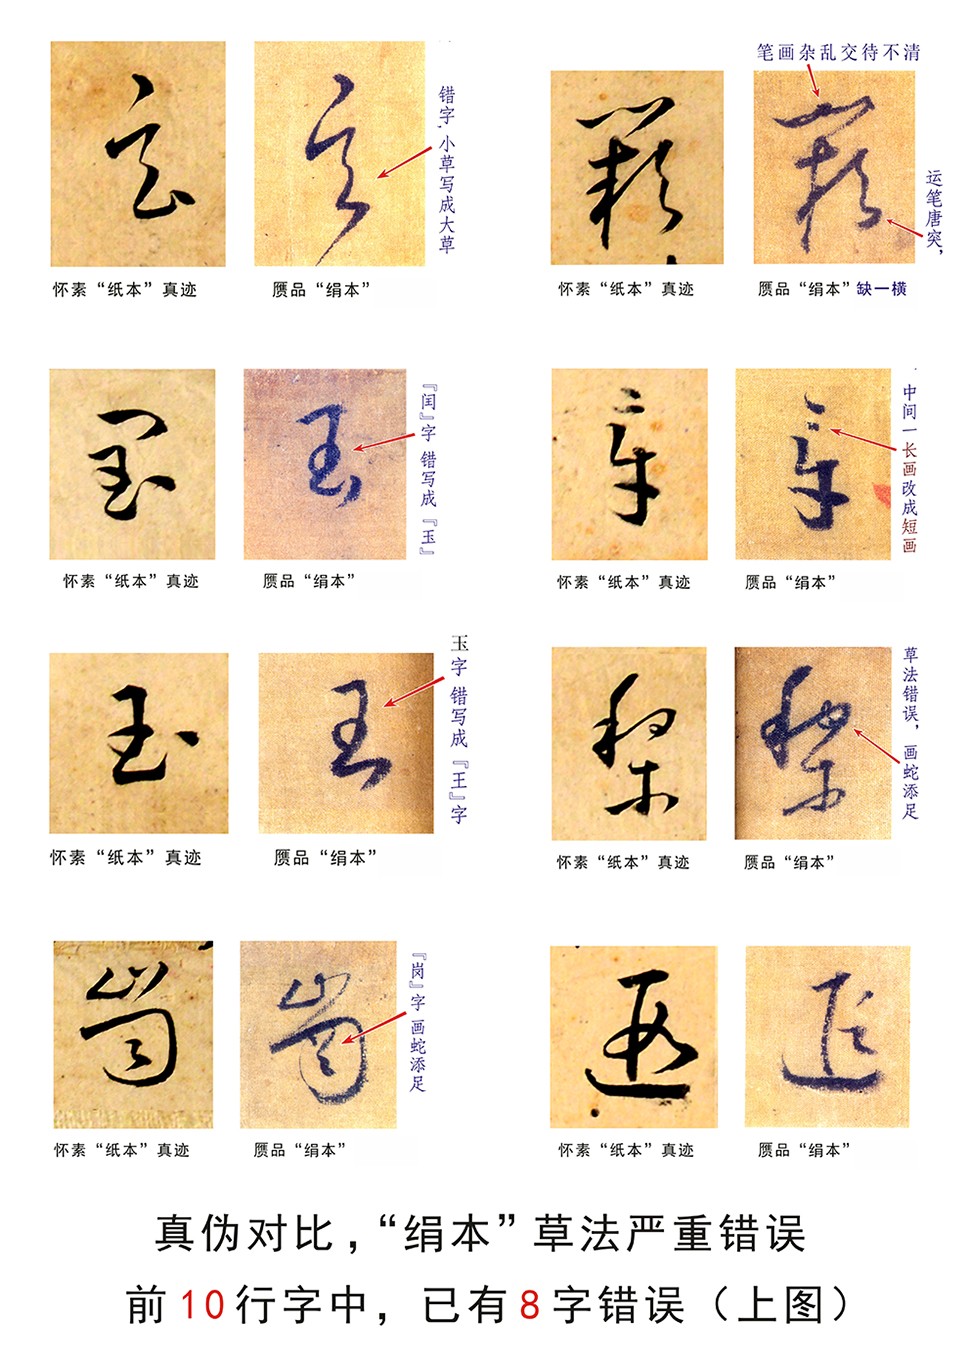 错字,小草写成大草
怀素“纸本”真迹
赝品“绢本”
笔画杂乱交待不清
运笔唐突,
怀素“纸本”真迹
赝品“绢本”缺一横
『闰』字 错写成『玉』
怀素“纸本”真迹
赝品“绢本”
中间一长画改成短画
怀素“纸本”真迹
赝品“绢本”
玉字 错写成『王』字
怀素“纸本”真迹
赝品“绢本”
草法错误,画蛇添足
怀素“纸本”真迹
赝品“绢本”
『岗』字 画蛇添足
怀素“纸本”真迹
赝品“绢本”
怀素“纸本”真迹
赝品“绢本”
真伪对比,“绢本”草法严重错误
前10行字中,已有8字错误(上图)